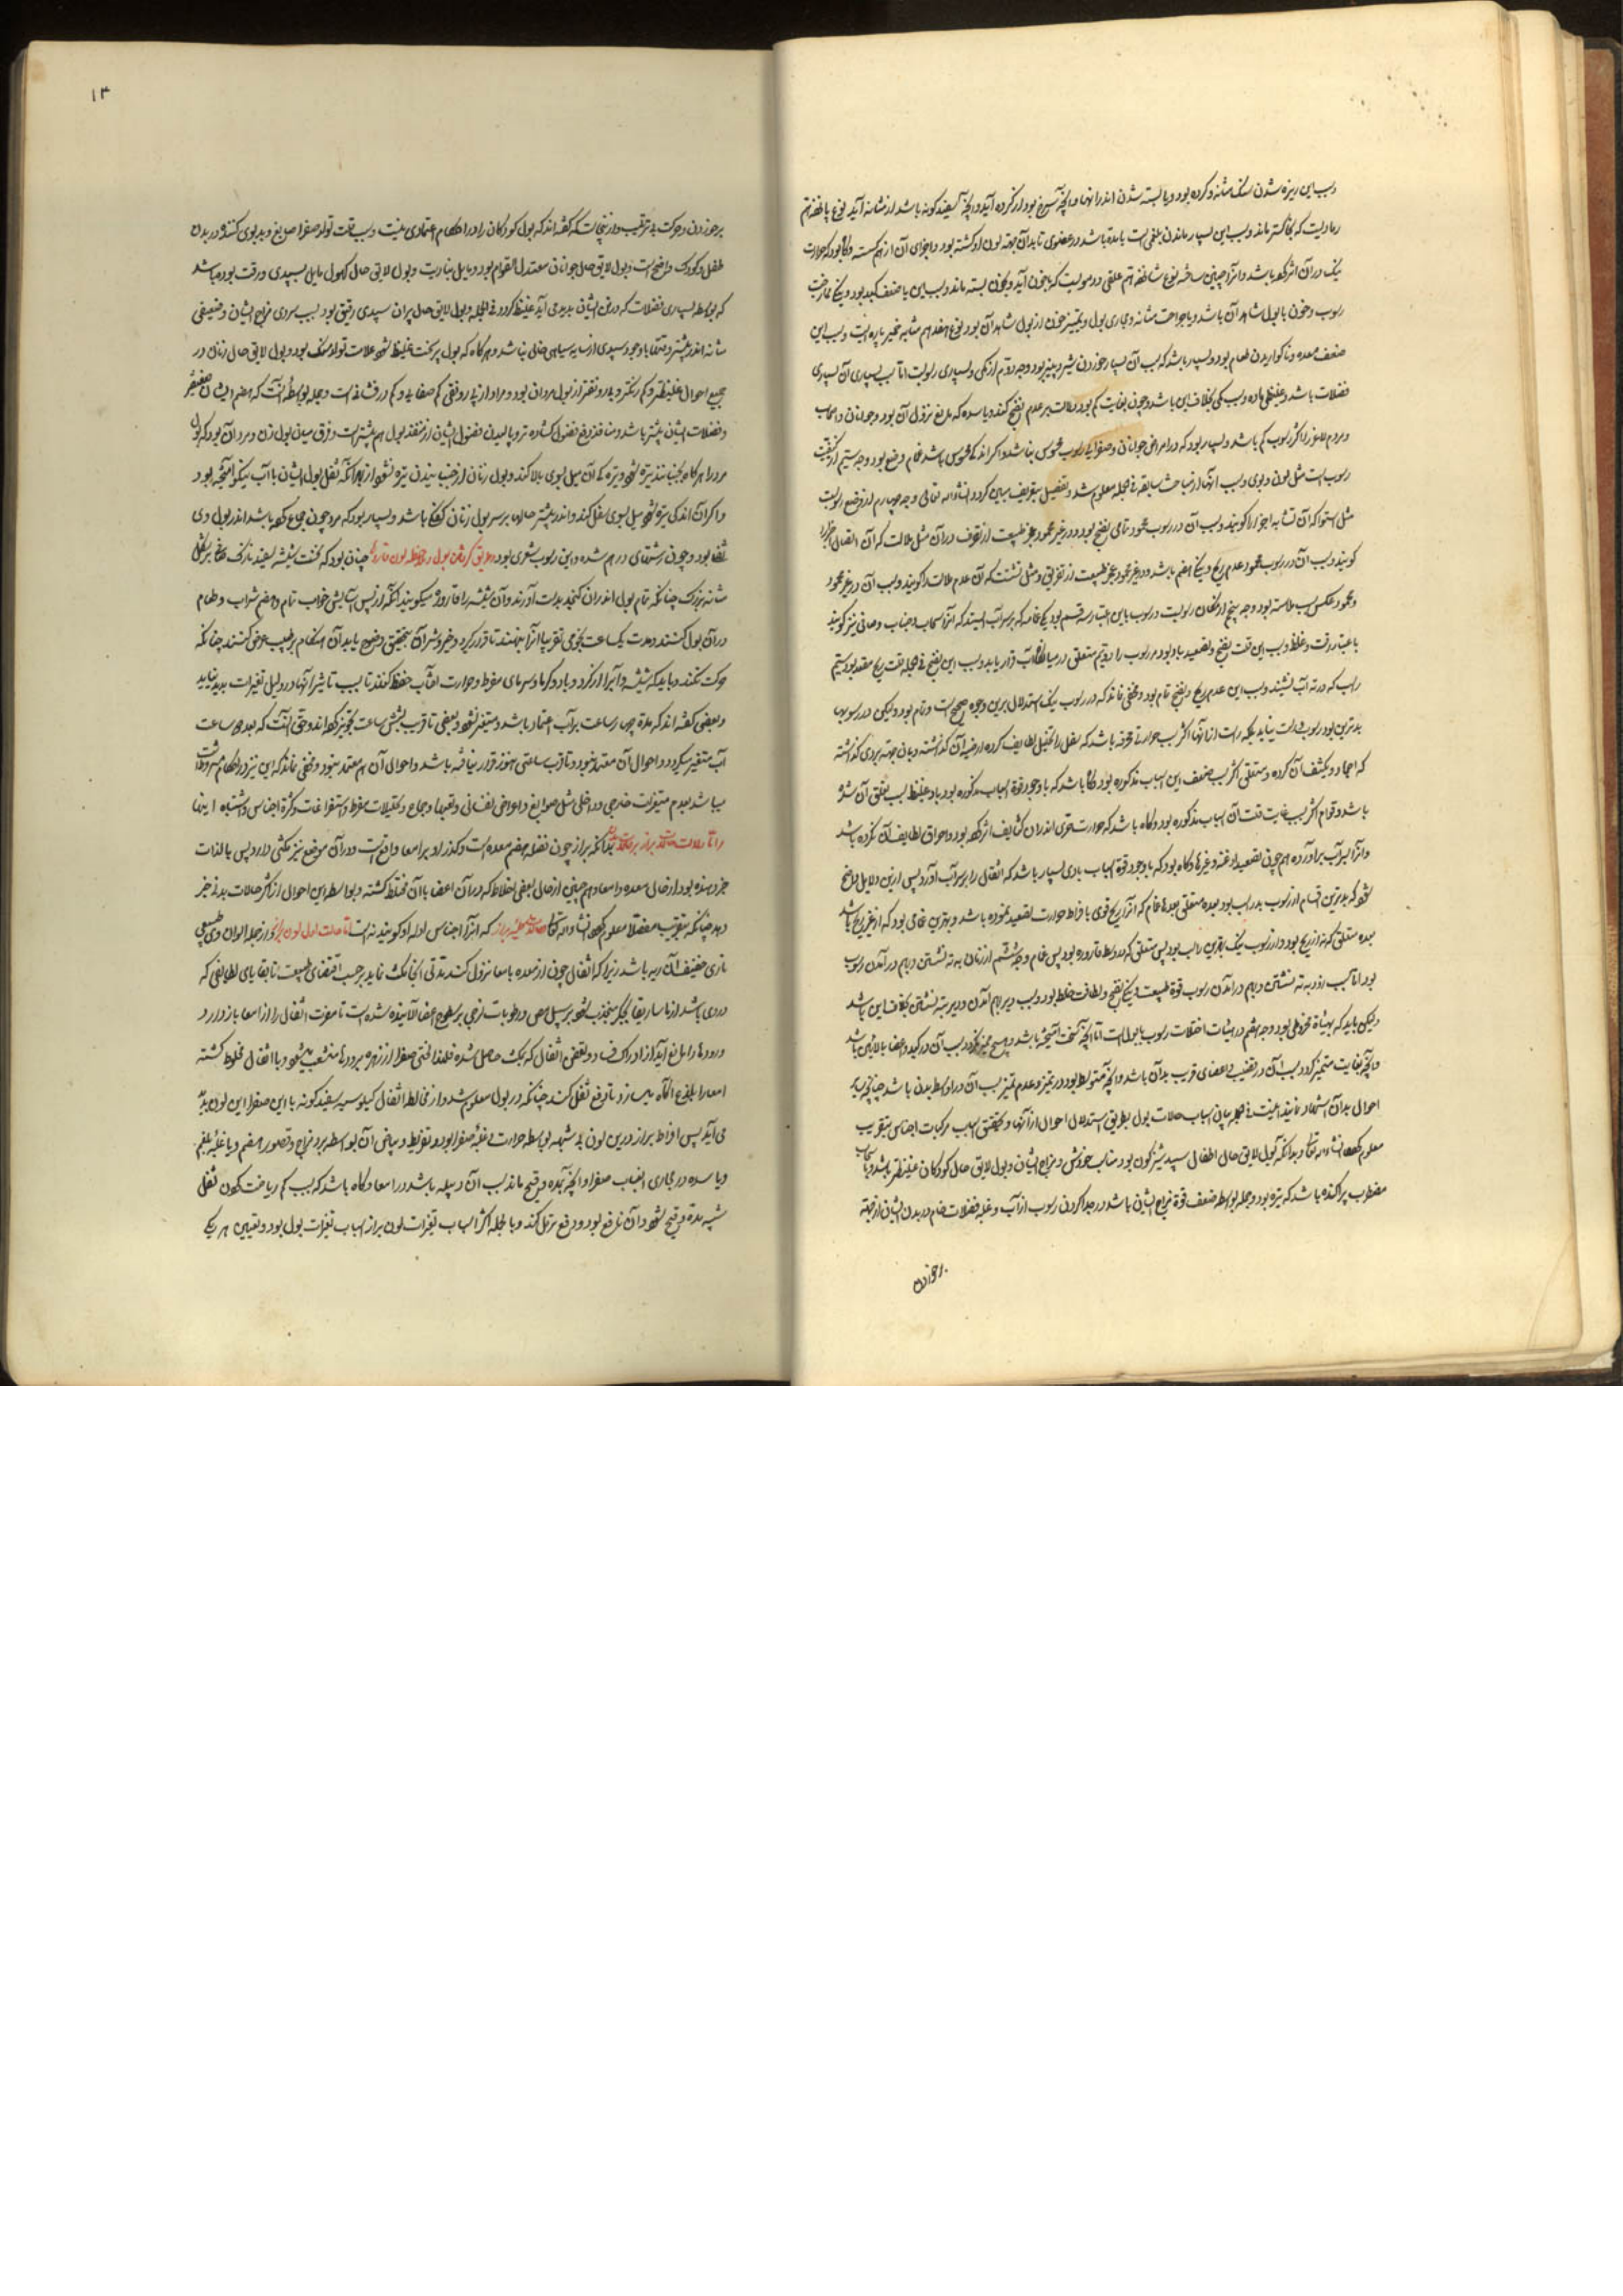 وسبب این ریزه شدن سنگ مثانه و کرده بود و یا بسته شدن اندر آنها و آنچه سرخ بود از کرده آید و آنچه سفید کونه باشد از مثانه آید نوع پانزدهم
رمادیست که بخاکستر ماند وسبب این بسیار ماندن بلغمی است یا مده باشد در عضوی تا بدان جهة لون او کشته بود و اجزای آن از هم کسسته و کاه بود که حرارت
نیک در آن اثر کرده باشد و آنرا چنین ساخته نوع شانزدهم علقی و دمویست که با خون آید و بخون بسته ماند وسبب این یا ضعف کبد بود
رسوب و خون با بول شاهد آن باشد و یا جراحت مثانه و مجاری بول و تمییز خون از بول شاهد آن بود نوع هفدهم مشابه خمیر پاره است وسبب این
ضعف معده و ناکواریدن طعام بود و بسیار باشد که سبب آن بسیار خوردن شیر و پنیر بود وجه دوم از کمی و بسیاری رسوبست اما سبب بسیاری آن بسیاری
فضلات باشد و غلیظی ماده وسبب کمی بخلاف این باشد و چون بغایت کم بود دلالت بر عدم نضج کند و یا سده که مانع نزول آن بود و جوانان و اصحاب
و مردم لاغر را اکثر رسوب کم باشد و بسیار بود که در امراض جوانان و صفراوی رسوب محسوس نباشد و اکر اندکی محسوس باشد خام و نضج بود وجه سیم از کیفیت
رسوب است مثل لون و بوی وسبب آنها از مباحث سابقه فی الجمله معلوم شد و تفصیل بتقریب مبین کردد انشاء الله تعالی وجه چهارم از وضع رسوبست
مثل استوا که آن تشابه اجزا را کویند وسبب آن در رسوب محمود تمامی نضج بود و در غیر محمود عجز طبیعت از تصرف در آن مثل ملاست که آن اتصال اجزا را
کویند وسبب آن در رسوب محمود عدم ریح و نیکی هضم باشد و در غیر محمود عجز طبیعت از تفریق و مثل تشتت که آن عدم ملاست را کویند وسبب آن در غیر محمود
و محمود عکس سبب ملاست بود وجه پنجم از مکان رسوبست و رسوب باین اعتبار سه قسم بود یکی غمامه که بر سر آب ایستد که آنرا سحاب و ضباب و صافی نیز کویند
باعتبار رقت و غلظ وسبب این قلت نضج و تصعید باد بود مر رسوب را دویم متعلق در میانه آب قرار یابد وسبب این نضج فی الجمله قلت ریح مقدم بود سیم
راسب که در ته آب نشیند وسبب این عدم ریح و نضج تام بود و مخفی نماند که در رسوب نیک استدلال برین وجوه صحیح است و تمام بود ولیکن در رسوب بد
بدترین بود رسوب
که اجماد و تکثیف آن کرده و متعلقی اکثر سبب ضعف این اسباب مذکوره بود و کاه باشد که با وجود قوة اسباب مذکوره بود باد غلیظ سبب تعلق آن شده
باشد و قوام اکثر سبب غایت قلت آن اسباب مذکوره بود و کاه باشد که حرارت محرق اندران کثایف اثر کرده بود و احراق لطایف آن نکرده باشد
و آنرا بر سر آب برآورده هم چون تصعید ادغنه و غیره و کاه بود که با وجود قوة اسباب بادی بسیار باشد که اثقال را بر سر آب آورد پس ازین دلایل واضح
شود که بدترین اقسام از رسوب بد راسب بود بعده متعلق بعده خام که آنرا ریح قوی یا افراط حرارت تصعید نموده باشد و بهترین خامی بود که از غیر ریح باشد
بعده متعلق که نه از ریح بود و از رسوب نیک بهترین راسب بود پس متعلق که در وسط قاروره بود پس غمام وجه ششم از زمان به ته نشستن و بهم درآمدن رسوب
بود اما سبب زود به ته نشستن و بهم درآمدن رسوب قوة طبیعت و نیکی نضج و لطافت خلط بود وسبب دیر بهم آمدن و دیر به ته نشستن بخلاف این باشد
ولیکن باید که بهیئاة مخروطی بود وجه هفتم در هیئات اختلاط رسوب با بول است اما آنچه سخت آمیخته باشد و هیچ ممیز نکردد سبب آن در کبد و اعضا بالایین باشد
و آنچه بغایت متمیز کردد سبب آن در قضیب و اعضای قریب بدان باشد و آنچه متوسط بود در تمیز و عدم تمیز سبب آن در اوسط بدن باشد چنانچه سایر
احوال بدان استشهاد نمایند اینست فی الجمله بیان اسباب حالات بول بطریق استدلال احوال از آنها و تحقیق اسباب مرکبات اجناس بتقریب
معلوم کرده انشاء الله تعالی و بدانکه بول لایق حال اطفال سپید شیر کون بود مناسب خورش و مزاج ایشان و بول لایق حال کودکان غلیظتر باشد و با سحاب
مضطرب پراکنده باشد که تیره بود و جمله بواسطه ضعف قوة مزاج ایشان باشد در جدا کردن رسوب از آب و غلبه فضلات خام در بدن ایشان از جهة
پرخوردن
۱۳
پرخوردن و حرکت بی ترتیب و ازینجاست که کفته اند که بول کودکان را در احکام اعتمادی نیست وسبب قلت تولد صفرا صبغ و بد بوی کنند در بدن
طفل و کودک واضح است و بول لایق حال جوانان معتدل القوام بود و مایل بناریت و بول لایق حال کهول مایل بسپیدی و رقت بود و باشد
که بواسطه بسیاری فضلات که در تن ایشان پدید می آید غلیظ کردد فی الجمله و بول لایق حال پیران سپیدی رقیق بود بسبب سردی مزاج ایشان و ضعیفی
مثانه اندر بیشتر وقتها با وجود سپیدی از سایه سیاهی خالی نباشد و هر کاه که بول پیر سخت غلیظ شود علامت تولد سنک بود و بول لایق حال زنان در
جمیع احوال غلیظتر و کم رنکتر و بی رونقتر از بول مردان بود و مراد از بی رونقی کم صفایی و کم درفشانی است و جمله بواسطه آنست که هضم ایشان ضعیفتر
و فضلات ایشان بیشتر باشد و منافذ دفع فضول کشاده تر و پالیدن فضول ایشان از منفذ بول هم بیشتر است و فرق میان بول زن و مرد آن بود که بول
مرد را هر کاه بجنبانند تیره شود و تیرکی آن میل بسوی بالا کند و بول زنان از جنبانیدن تیره نشود از بهر آنکه ثفل بول ایشان با آب نیکو آمیخته بود
و اکر آن اندکی تیره شود میل بسوی اسفل کند و اندر بیشتر حالات بر سر بول زنان کفکی باشد و بسیار بود که مرد چون جماع کرده باشد اندر بول وی
ثفلها بود و چون رشتهای درهم شده و این رسوب شعری بود و طریق کرفتن بول و ملاحظه لون قاروره چنان بود که نخست شیشه سفید نازک صافی بشکل
مثانه بزرک چنانکه تمام بول اندران کنجد بدست آورند و آن شیشه را قاروره میکویند آنکه از پس آسایش خواب تمام و هضم شراب و طعام
در آن بول کنند و مدت یک ساعت نجومی تقریبا آنرا بنهند تا قرار کیرد و خیر و شر آن بتحقیق وضوح یابد آن هنکام بر طبیب عرض کنند چنانکه
حرکت نکند و باید که شیشه و آنرا از کرد و باد و کرما و سرمای مفرط و حرارت آفتاب حفظ کنند تا بسبب تاثیر آنها در دلیل تغیرات پدید نیاید
و بعضی کفته اند که مدة چهار ساعت بر آب اعتماد باشد و متغیر نشود و بعضی تا قریب بشش ساعت تجویز کرده اند و حق آنست که بعد دو ساعت
آب متغیر میکردد و احوال آن معتمد نبود و تا قریب ساعتی هنوز قرار نیافته باشد و احوال آن هم معتمد نبود و مخفی نماند که این نیز در احکام مشروط
میباشد بعدم متغیرات خارجی و داخلی مثل صوابغ و اعراض نفسانی و تعبها و جماع و تخیلات مفرط و استفراغات و کثرة اجناس و اشتباه اینها
و اما دلالت براز بر بدانکه براز چون فضله هضم معده است و کذر او بر امعا واقع است و در آن موضع نیز مکثی دارد پس بالذات
خبر دهنده بود از حال معده و امعا و هم چنین از حال بعضی اخلاط که در آن اعضا با آن مختلط کشته و بواسطه این احوال از اکثر حالات بدنی خبر
دهد چنانکه بتقریب مفصلا معلوم کرده انشاء الله تعالی براز که آنرا اجناس ادله او کویند نه است اما جنس اول لون براز و از جمله الوان وی طبیعی
ناری خفیف النار یه باشد زیرا که اثفال چون از معده بامعا نزول کند مدتی آنجا مکث نماید بر حسب اقتضای طبیعت تا بقایای لطایفی که
در وی باشد از ماساریقا بجکر منجذب شود بر سبیل مص و رطوبات لزجی بر سطوح امعا آلاییده شده است تا مضرت اثفال را از امعا باز دارد
امعا را بلذع آکاه میسازد تا دفع ثفل کند چنانکه در بول معلوم شد و از مخالطه اثفال کیلوسیه سفید کونه با این صفرا این لون پدید
می آید پس افراط براز درین لون بی شبهه بواسطه حرارت و غلبه صفرا بود و تفریط و بیاض آن بواسطه برد مزاج و قصور هضم و یا غلبه بلغم
و یا سده در مجاری انصباب صفرا و آنچه بمده و قیح ماند بسبب آن دبیله باشد در امعا و کاه باشد که بسبب کم ریاضت کردن ثفل
شبیه بمده و قیح شود و آن نافع بود و دفع ترهل کند و بالجمله اکثر اسباب تغیرات لون براز اسباب تغیرات بول بود و تعیین هر یکی